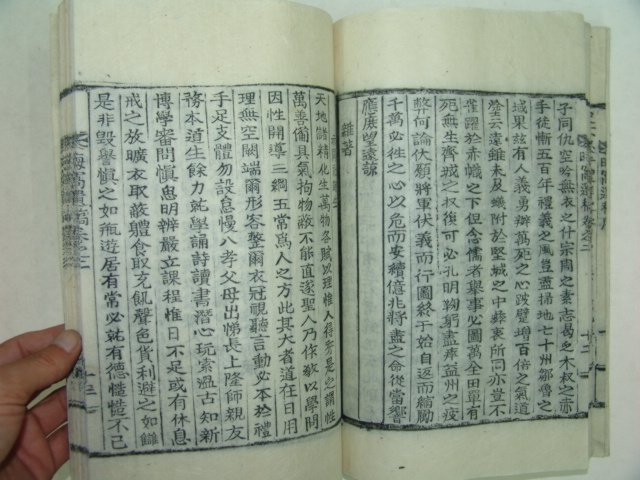 子同仇空吟無衣之什宗周之素志曷免木杈之
手徒慚五百年禮義之風豈盡掃地七十州鄒魯之
域果玆有人義勇辦萬死之心跛躄增百倍之氣道
登云遠雖未及蟻附於堅城之中葵衷所同亦豈不
雀躍於赤幟之下但念儒者擧事必圖萬全田單有
死無生齊城之杈復可必孔明鞠躬盡瘁益州之疲
弊何論伏願將軍伏義而行圖終于始自返而縮勵
千萬必徃之心以危而安續億兆將盡之命從當響
應庶望諒諒
雜著
天地儲精化生萬物各賦以理惟人得秀是之謂性
萬善備具氣拘物敝不能直遂聖人乃作敎以學問
因性開導三綱五常爲人之方此其大者道在日用
理無空闕端爾形容整爾衣冠視聽言動必本於禮
手足支體勿設怠慢入孝父母出悌長上隆師親友
務本道生餘力就學誦詩讀書潛心玩索溫古知新
博學審問愼思明辨嚴立課程惟日不足或有休息
戒之放曠衣取蔽軆食取充飢聲色貨利避之如讎
是非毁譽愼之如甁遊居有常必就有德慥慥不已